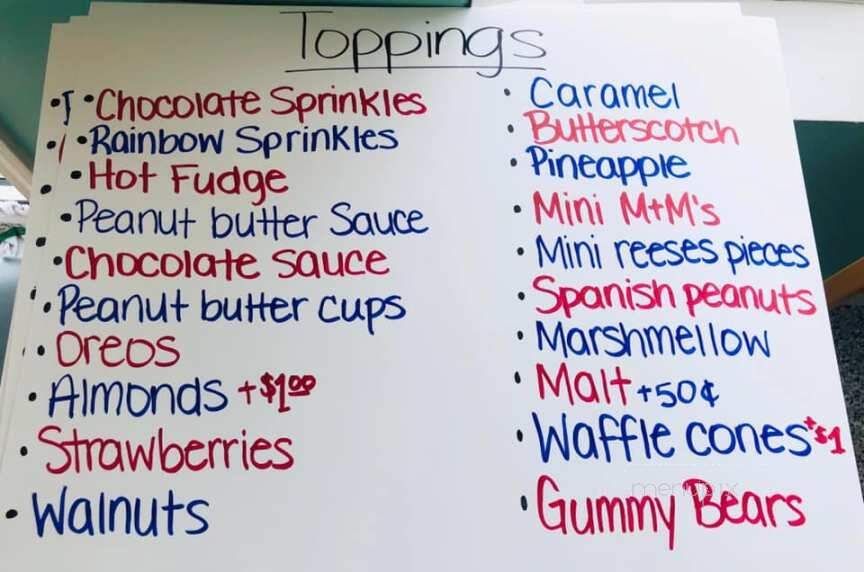 Toppings
• Chocolate Sprinkles
• Rainbow Sprinkles
• Hot Fudge
• Peanut butter Sauce
• Chocolate sauce
• Peanut butter cups
• Oreos
• Almonds +$1.00
• Strawberries
• Walnuts
• Caramel
• Butterscotch
• Pineapple
• Mini M+M's
• Mini reeses pieces
• Spanish peanuts
• Marshmellow
• Malt +50¢
• Waffle cones +$1
• Gummy Bears
menupix